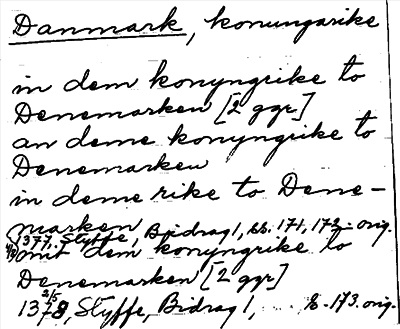 Danmark, konungarike
in dem konyngrike to
Denemarken [2 ggr.]
an deme konyngrike to
Denemarken
in deme rike to Dene-
marken
1377, Styffe, Bidrag 1, ss. 171, 172 - orig.
mit dem konyngrike to
Denemarken [2 ggr]
2/5
1378, Styffe, Bidrag 1, s. 173. orig.